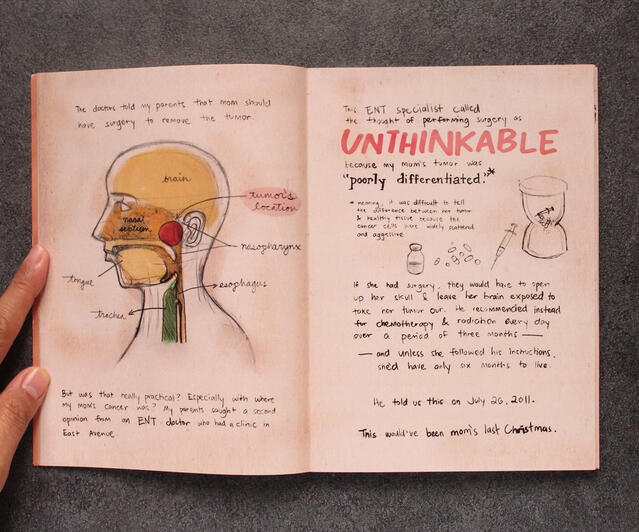 The doctors told my parents that mom should
have surgery to remove the tumor.
brain
tumor's
location
nasal
septum
nasopharynx
tongue
esophagus
trachea
But was that really practical? Especially with where
my mom's cancer was? My parents sought a second
opinion from an ENT doctor who had a clinic in
East Avenue.
This ENT specialist called
the thought of performing surgery as
UNTHINKABLE
because my mom's tumor was
"poorly differentiated."*
* meaning, it was difficult to tell
the difference between her tumor
& healthy tissue because the
cancer cells were widely scattered
and aggressive
If she had surgery, they would have to open
up her skull & leave her brain exposed to
take her tumor out. He recommended instead
for chemotherapy & radiation every day
over a period of three months —
— and unless she followed his instructions,
she'd have only six months to live.
He told us this on July 26, 2011.
This would've been mom's last Christmas.